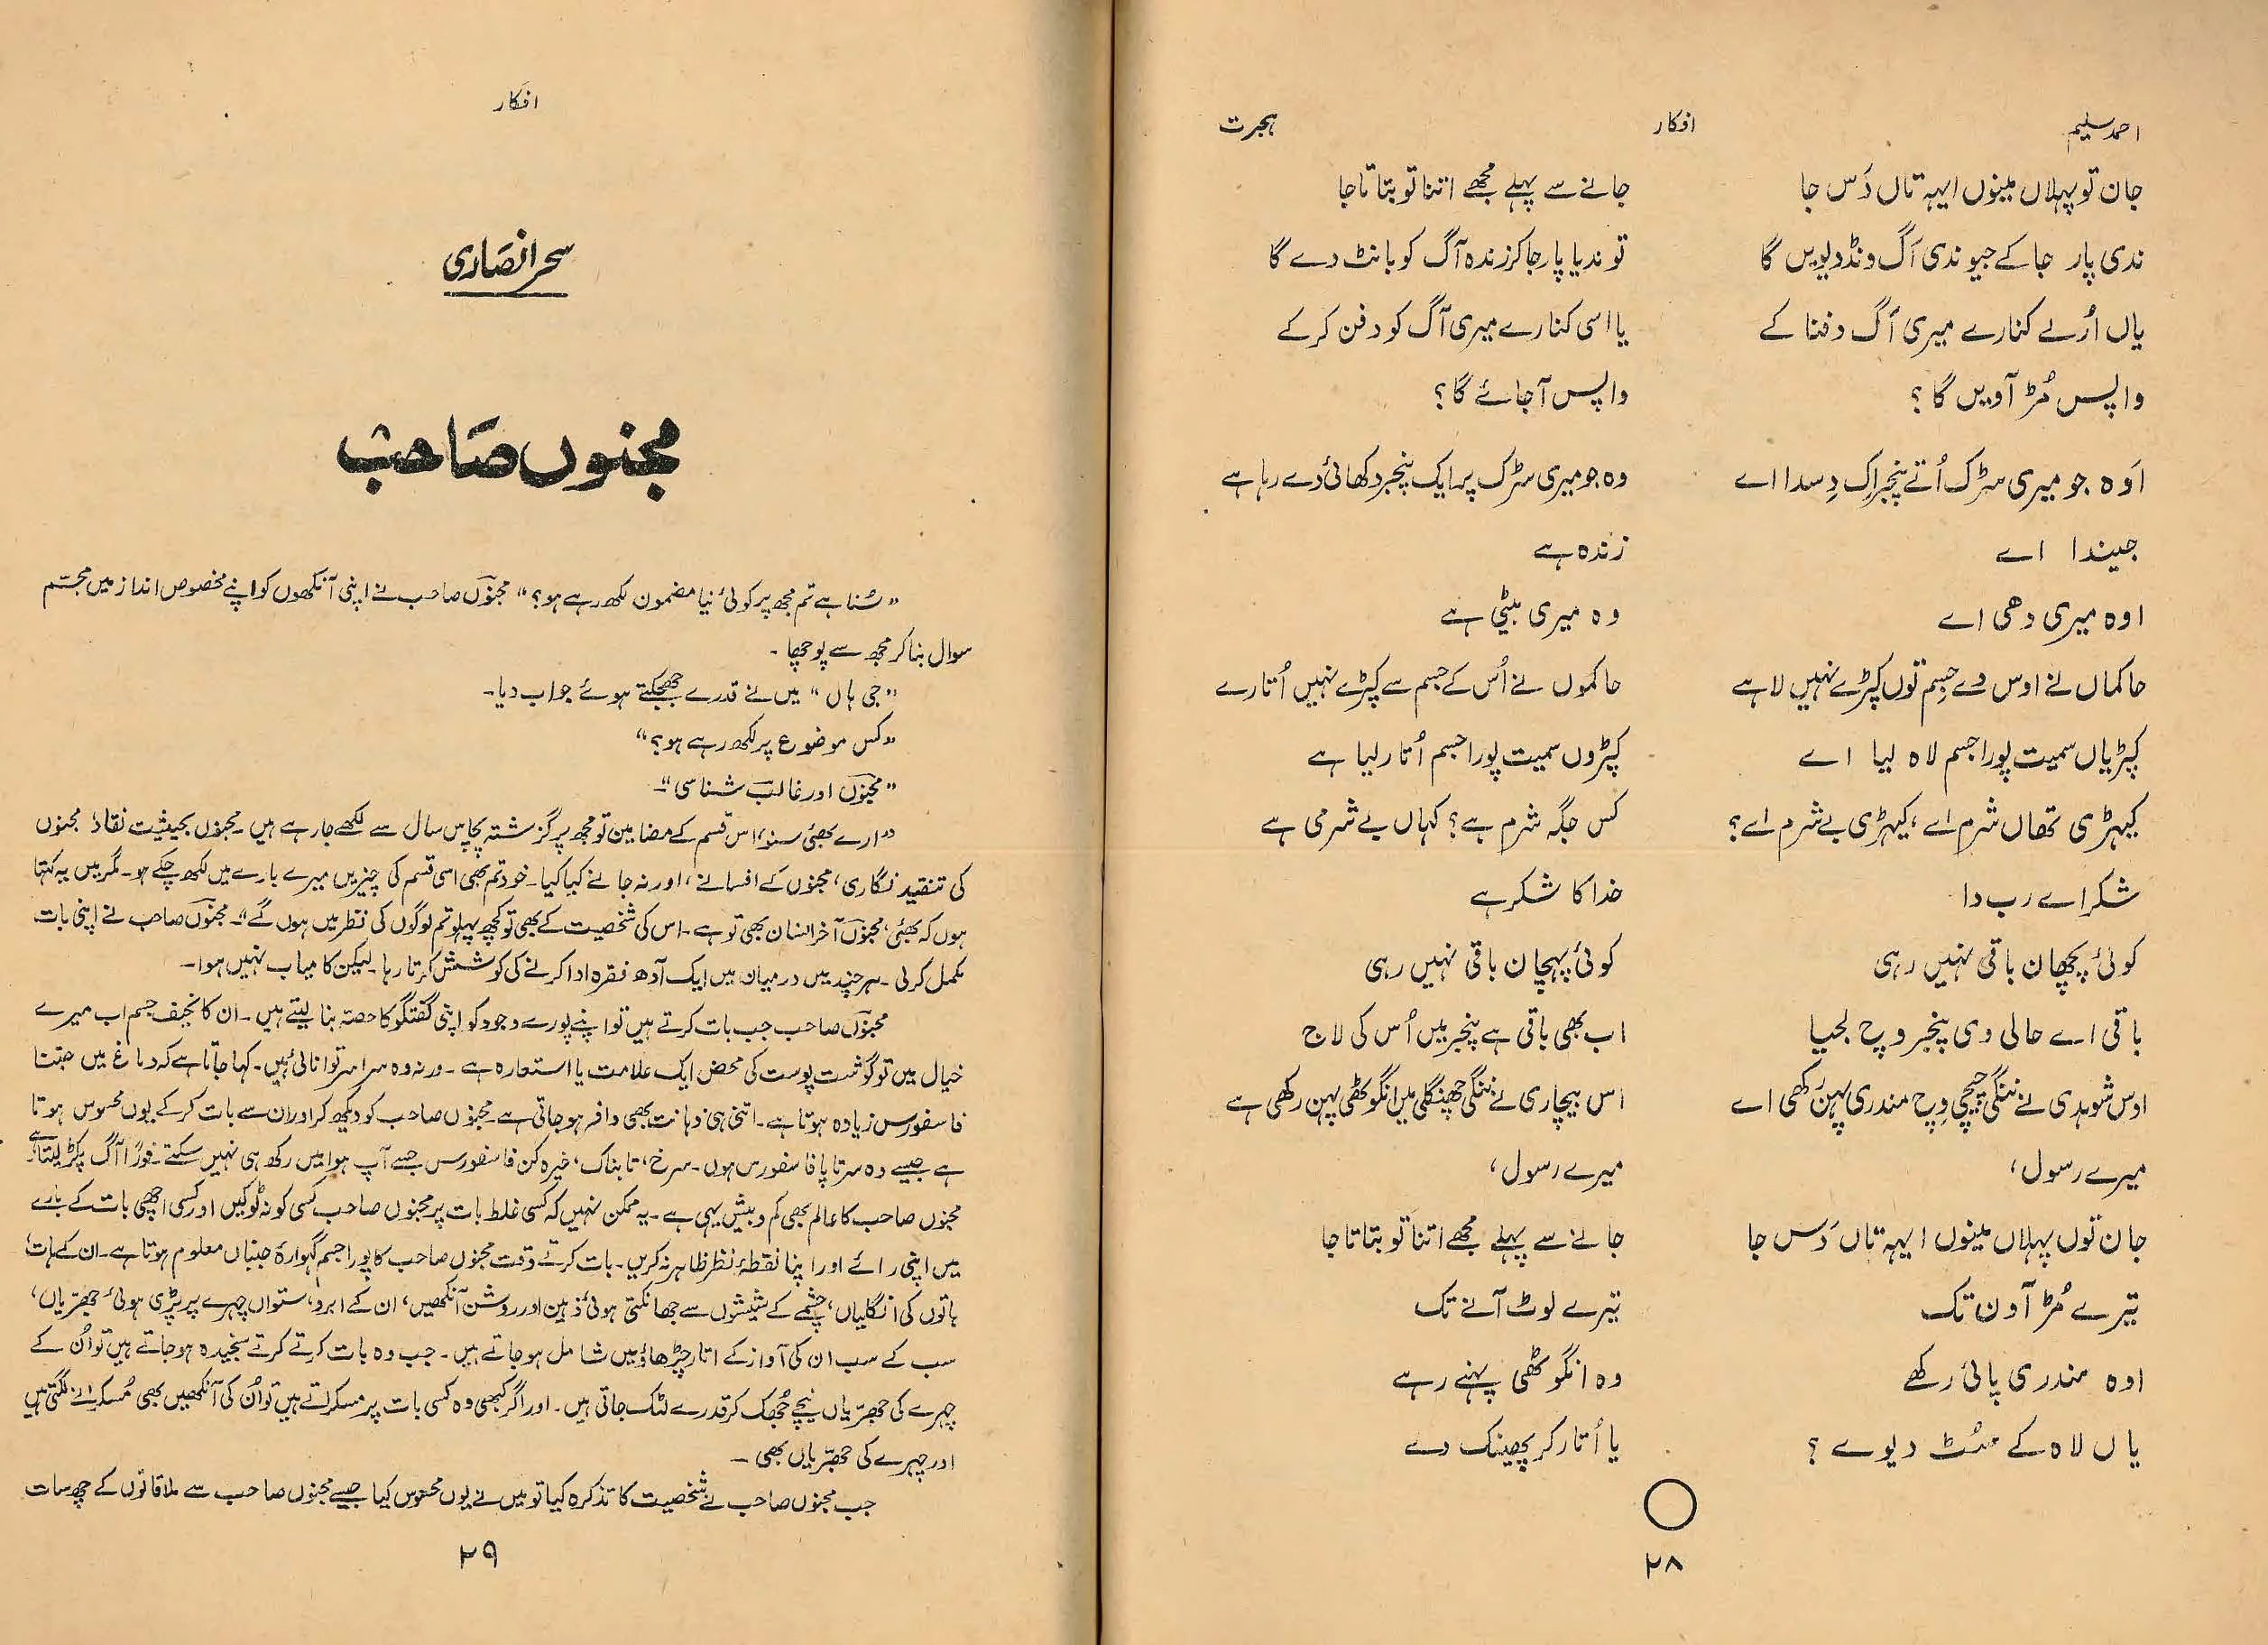 احمد سلیم
افکار
ہجرت
جان تو پہلاں مینوں ایہہ تاں دَس جا
ندی پار جا کے جیوندی اَگ ونڈ دیویں گا
یاں اُرلے کنارے میری اَگ دفنا کے
واپس مُڑ آویں گا؟
اَوہ جو میری سڑک اُتے پنجر اِک دِسدا اے
جیندا اے
اوہ میری دھی اے
حاکماں نے اوس دے جِسم توں کپڑے نہیں لاہے
کپڑیاں سمیت پورا جسم لاہ لیا اے
کیہڑی تھاں شرم اے، کیہڑی بے شرم اے؟
شکر اے رب دا
کوئی پچھان باقی نہیں رہی
باقی اے حالی وی پنجر وچ لجیا
اوس شوہدی نے ننگی چیچی وِچ مندری پہن رَکھی اے
میرے رسول،
جان توں پہلاں مینوں ایہہ تاں دَس جا
تیرے مُڑ آون تک
اوہ مندری پائی رکھے
یاں لاہ کے سُٹ دیوے؟
جانے سے پہلے مجھے اتنا تو بتاتا جا
تو ندیا پار جا کر زندہ آگ کو بانٹ دے گا
یا اسی کنارے میری آگ کو دفن کر کے
واپس آجائے گا؟
وہ جو میری سڑک پر ایک پنجر دکھائی دے رہا ہے
زندہ ہے
وہ میری بیٹی ہے
حاکموں نے اُس کے جسم سے کپڑے نہیں اُتارے
کپڑوں سمیت پورا جسم اُتار لیا ہے
کس جگہ شرم ہے؟ کہاں بے شرمی ہے
خدا کا شکر ہے
کوئی پہچان باقی نہیں رہی
اب بھی باقی ہے پنجر میں اُس کی لاج
اس بیچاری نے ننگی چھنگلی میں انگوٹھی پہن رکھی ہے
میرے رسول،
جانے سے پہلے مجھے اتنا تو بتاتا جا
تیرے لوٹ آنے تک
وہ انگوٹھی پہنے رہے
یا اُتار کر پھینک دے
۲۸
افکار
سحر انصاری
مجنوں صاحب
”سُنا ہے تم مجھ پر کوئی نیا مضمون لکھ رہے ہو؟“ مجنوںؔ صاحب نے اپنی آنکھوں کو اپنے مخصوص انداز میں مجسّم
سوال بنا کر مجھ سے پوچھا۔
”جی ہاں“ میں نے قدرے جھجکتے ہوئے جواب دیا۔
”کس موضوع پر لکھ رہے ہو؟“
”مجنوںؔ اور غالبؔ شناسی“۔
”ارے بھئی سنو، اس قسم کے مضامین تو مجھ پر گزشتہ پچاس سال سے لکھے جا رہے ہیں۔ مجنوں بحیثیت نقاد، مجنوں
کی تنقید نگاری، مجنوں کے افسانے، اور نہ جانے کیا کیا۔ خود تم بھی اسی قسم کی چیزیں میرے بارے میں لکھ چکے ہو۔ مگر میں یہ کہتا
ہوں کہ بھئی، مجنوںؔ آخر انسان بھی تو ہے۔ اس کی شخصیت کے بھی تو کچھ پہلو تم لوگوں کی نظر میں ہوں گے“۔ مجنوںؔ صاحب نے اپنی بات
مکمل کر لی۔ ہر چند میں درمیان میں ایک آدھ فقرہ ادا کرنے کی کوشش کرتا رہا۔ لیکن کامیاب نہیں ہوا۔
مجنوںؔ صاحب جب بات کرتے ہیں تو اپنے پورے وجود کو اپنی گفتگو کا حصّہ بنا لیتے ہیں۔ ان کا نحیف جسم اب میرے
خیال میں تو گوشت پوست کی محض ایک علامت یا استعارہ ہے۔ ورنہ وہ سراسر توانائی ہیں۔ کہا جاتا ہے کہ دماغ میں جتنا
فاسفورس زیادہ ہوتا ہے۔ اتنی ہی ذہانت بھی وافر ہو جاتی ہے۔ مجنوں صاحب کو دیکھ کر اور ان سے بات کر کے یوں محسوس ہوتا
ہے جیسے وہ سرتاپا فاسفورس ہوں۔ سرخ، تابناک، خیرہ کن فاسفورس جسے آپ ہوا میں رکھ ہی نہیں سکتے۔ فوراً آگ پکڑ لیتا ہے۔
مجنوں صاحب کا عالم بھی کم و بیش یہی ہے۔ یہ ممکن نہیں کہ کسی غلط بات پر مجنوں صاحب کسی کو نہ ٹوکیں اور کسی اچھی بات کے بارے
میں اپنی رائے اور اپنا نقطۂ نظر ظاہر نہ کریں۔ بات کرتے وقت مجنوں صاحب کا پورا جسم گہوارۂ جنباں معلوم ہوتا ہے۔ ان کے ہات،
ہاتوں کی انگلیاں، چشمے کے شیشوں سے جھانکتی ہوئی ذہین اور روشن آنکھیں، ان کے ابرو، ستواں چہرے پر پڑی ہوئی جھرّیاں،
سب کے سب ان کی آواز کے اتار چڑھاؤ میں شامل ہو جاتے ہیں۔ جب وہ بات کرتے کرتے سنجیدہ ہو جاتے ہیں تو اُن کے
چہرے کی جھرّیاں نیچے جُھک کر قدرے لٹک جاتی ہیں۔ اور اگر کبھی وہ کسی بات پر مسکراتے ہیں تو اُن کی آنکھیں بھی مُسکرانے لگتی ہیں
اور چہرے کی جھرّیاں بھی۔
جب مجنوں صاحب نے شخصیت کا تذکرہ کیا تو میں نے یوں محسوس کیا جیسے مجنوں صاحب سے ملاقاتوں کے چھ سات
۲۹